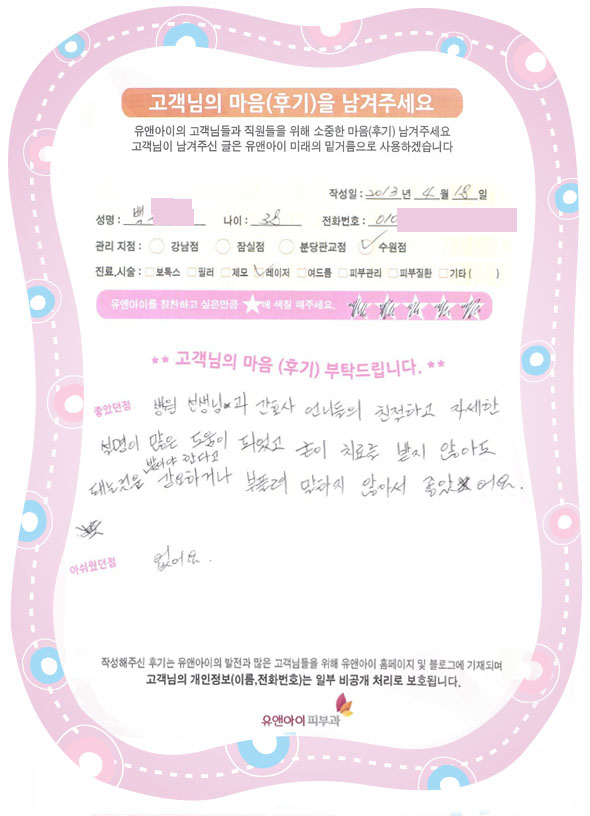 고객님의 마음(후기)을 남겨주세요
유앤아이의 고객님들과 직원들을 위해 소중한 마음(후기) 남겨주세요
고객님이 남겨주신 글은 유앤아이 미래의 밑거름으로 사용하겠습니다
작성일 : 2013 년 4 월 18 일
성명 : 백 나이 : 38 전화번호 : 010
관리 지점 : 강남점 잠실점 분당판교점 수원점
진료,시술 : 보톡스 필러 제모 레이저 여드름 피부관리 피부질환 기타 ( )
유앤아이를 칭찬하고 싶은만큼 ★에 색칠 해주세요.
** 고객님의 마음 (후기) 부탁드립니다. **
좋았던점 병원 선생님과 간호사 언니들의 친절하고 자세한
설명이 많은 도움이 되었고 굳이 치료를 받지 않아도
되는것을 받아야 한다고 강요하거나 부풀려 말하지 않아서 좋았어요.
아쉬웠던점 없어요.
작성해주신 후기는 유앤아이의 발전과 많은 고객님들을 위해 유앤아이 홈페이지 및 블로그에 기재되며
고객님의 개인정보(이름,전화번호)는 일부 비공개 처리로 보호됩니다.
유앤아이피부과